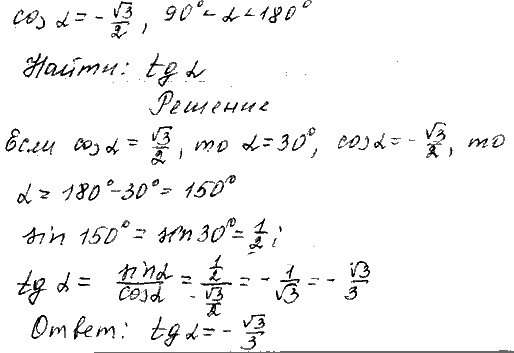 cos α = -√3/2, 90° < α < 180°
Найти: tg α
Решение
Если cos α = √3/2, то α = 30°, cos α = -√3/2, то
α = 180° - 30° = 150°
sin 150° = sin 30° = 1/2;
tg α = sin α/cos α = (1/2)/(-√3/2) = -1/√3 = -√3/3
Ответ: tg α = -√3/3